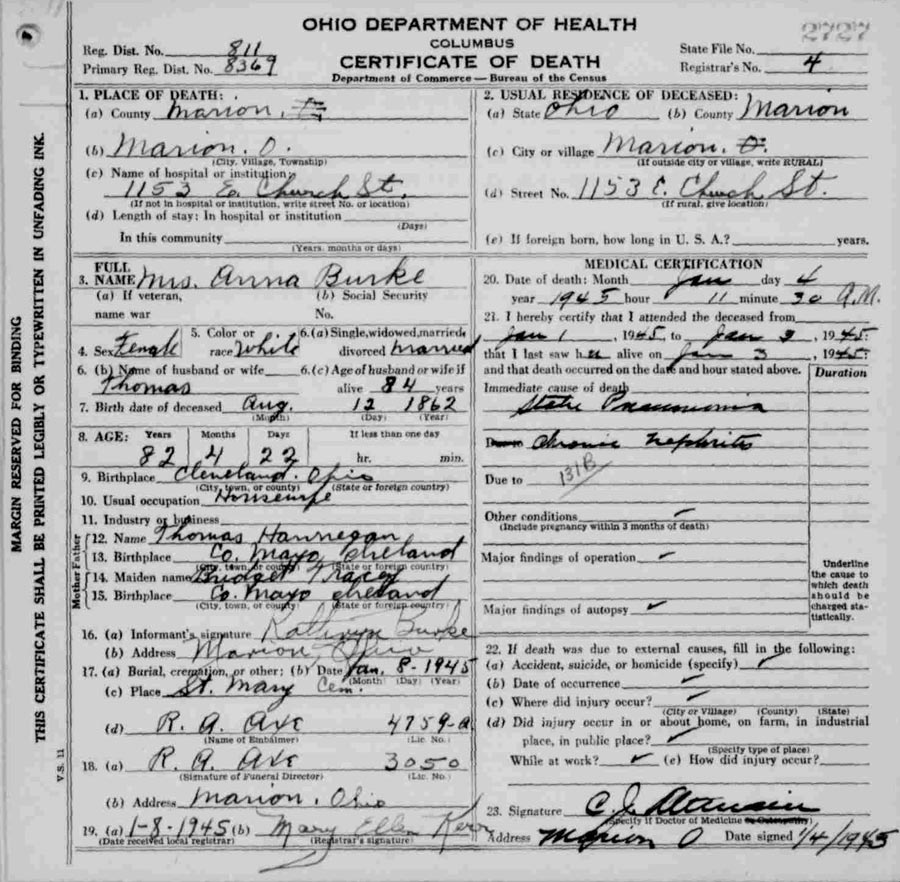 OHIO DEPARTMENT OF HEALTH
COLUMBUS
CERTIFICATE OF DEATH
Department of Commerce — Bureau of the Census
Reg. Dist. No. 811
Primary Reg. Dist. No. 8369
2727
State File No.
Registrar's No. 4
MARGIN RESERVED FOR BINDING
THIS CERTIFICATE SHALL BE PRINTED LEGIBLY OR TYPEWRITTEN IN UNFADING INK.
V.S. 11
1. PLACE OF DEATH:
(a) County Marion.
(b) Marion. O.
(City, Village, Township)
(c) Name of hospital or institution:
1153 E. Church St.
(If not in hospital or institution, write street No. or location)
(d) Length of stay: In hospital or institution
(Days)
In this community
(Years, months or days)
2. USUAL RESIDENCE OF DECEASED:
(a) State Ohio (b) County Marion
(c) City or village Marion. O.
(If outside city or village, write RURAL)
(d) Street No. 1153 E. Church St.
(If rural, give location)
(e) If foreign born, how long in U. S. A.? years.
3. FULL NAME Mrs. Anna Burke
(a) If veteran, name war
(b) Social Security No.
4. Sex Female
5. Color or race White
6. (a) Single, widowed, married, divorced married
6. (b) Name of husband or wife
Thomas
6. (c) Age of husband or wife if alive 84 years
7. Birth date of deceased Aug. 12 1862
(Month) (Day) (Year)
8. AGE: Years Months Days If less than one day
82 4 22 hr. min.
9. Birthplace Cleveland. Ohio
(City, town, or county) (State or foreign country)
10. Usual occupation Housewife
11. Industry or business
Father
12. Name Thomas Hannegan
13. Birthplace Co. Mayo Ireland
(City, town, or county) (State or foreign country)
Mother
14. Maiden name Bridget Tracey
15. Birthplace Co. Mayo Ireland
(City, town, or county) (State or foreign country)
16. (a) Informant's signature Kathryn Burke
(b) Address Marion Ohio
17. (a) Burial, cremation, or other: (b) Date Jan. 8-1945
(Month) (Day) (Year)
(c) Place St. Mary Cem.
(d) R. A. Axe 4759-A
(Name of Embalmer) (Lic. No.)
18. (a) R. A. Axe 3050
(Signature of Funeral Director) (Lic. No.)
(b) Address Marion. Ohio
19. (a) 1-8-1945 (b) Mary Ellen Kerr
(Date received local registrar) (Registrar's signature)
MEDICAL CERTIFICATION
20. Date of death: Month Jan day 4
year 1945 hour 11 minute 30 A.M.
21. I hereby certify that I attended the deceased from
Jan 1, 1945, to Jan 3, 1945.
that I last saw her alive on Jan 3, 1945.
and that death occurred on the date and hour stated above.
Duration
Immediate cause of death
Static Pneumonia
Chronic nephritis
Due to 131B
Other conditions
(Include pregnancy within 3 months of death)
Major findings of operation
Major findings of autopsy
Underline the cause to which death should be charged statistically.
22. If death was due to external causes, fill in the following:
(a) Accident, suicide, or homicide (specify)
(b) Date of occurrence
(c) Where did injury occur?
(City or Village) (County) (State)
(d) Did injury occur in or about home, on farm, in industrial
place, in public place?
(Specify type of place)
While at work? (e) How did injury occur?
23. Signature C. J.
(Specify if Doctor of Medicine or Osteopathy)
Address Marion O Date signed 1/4/1945